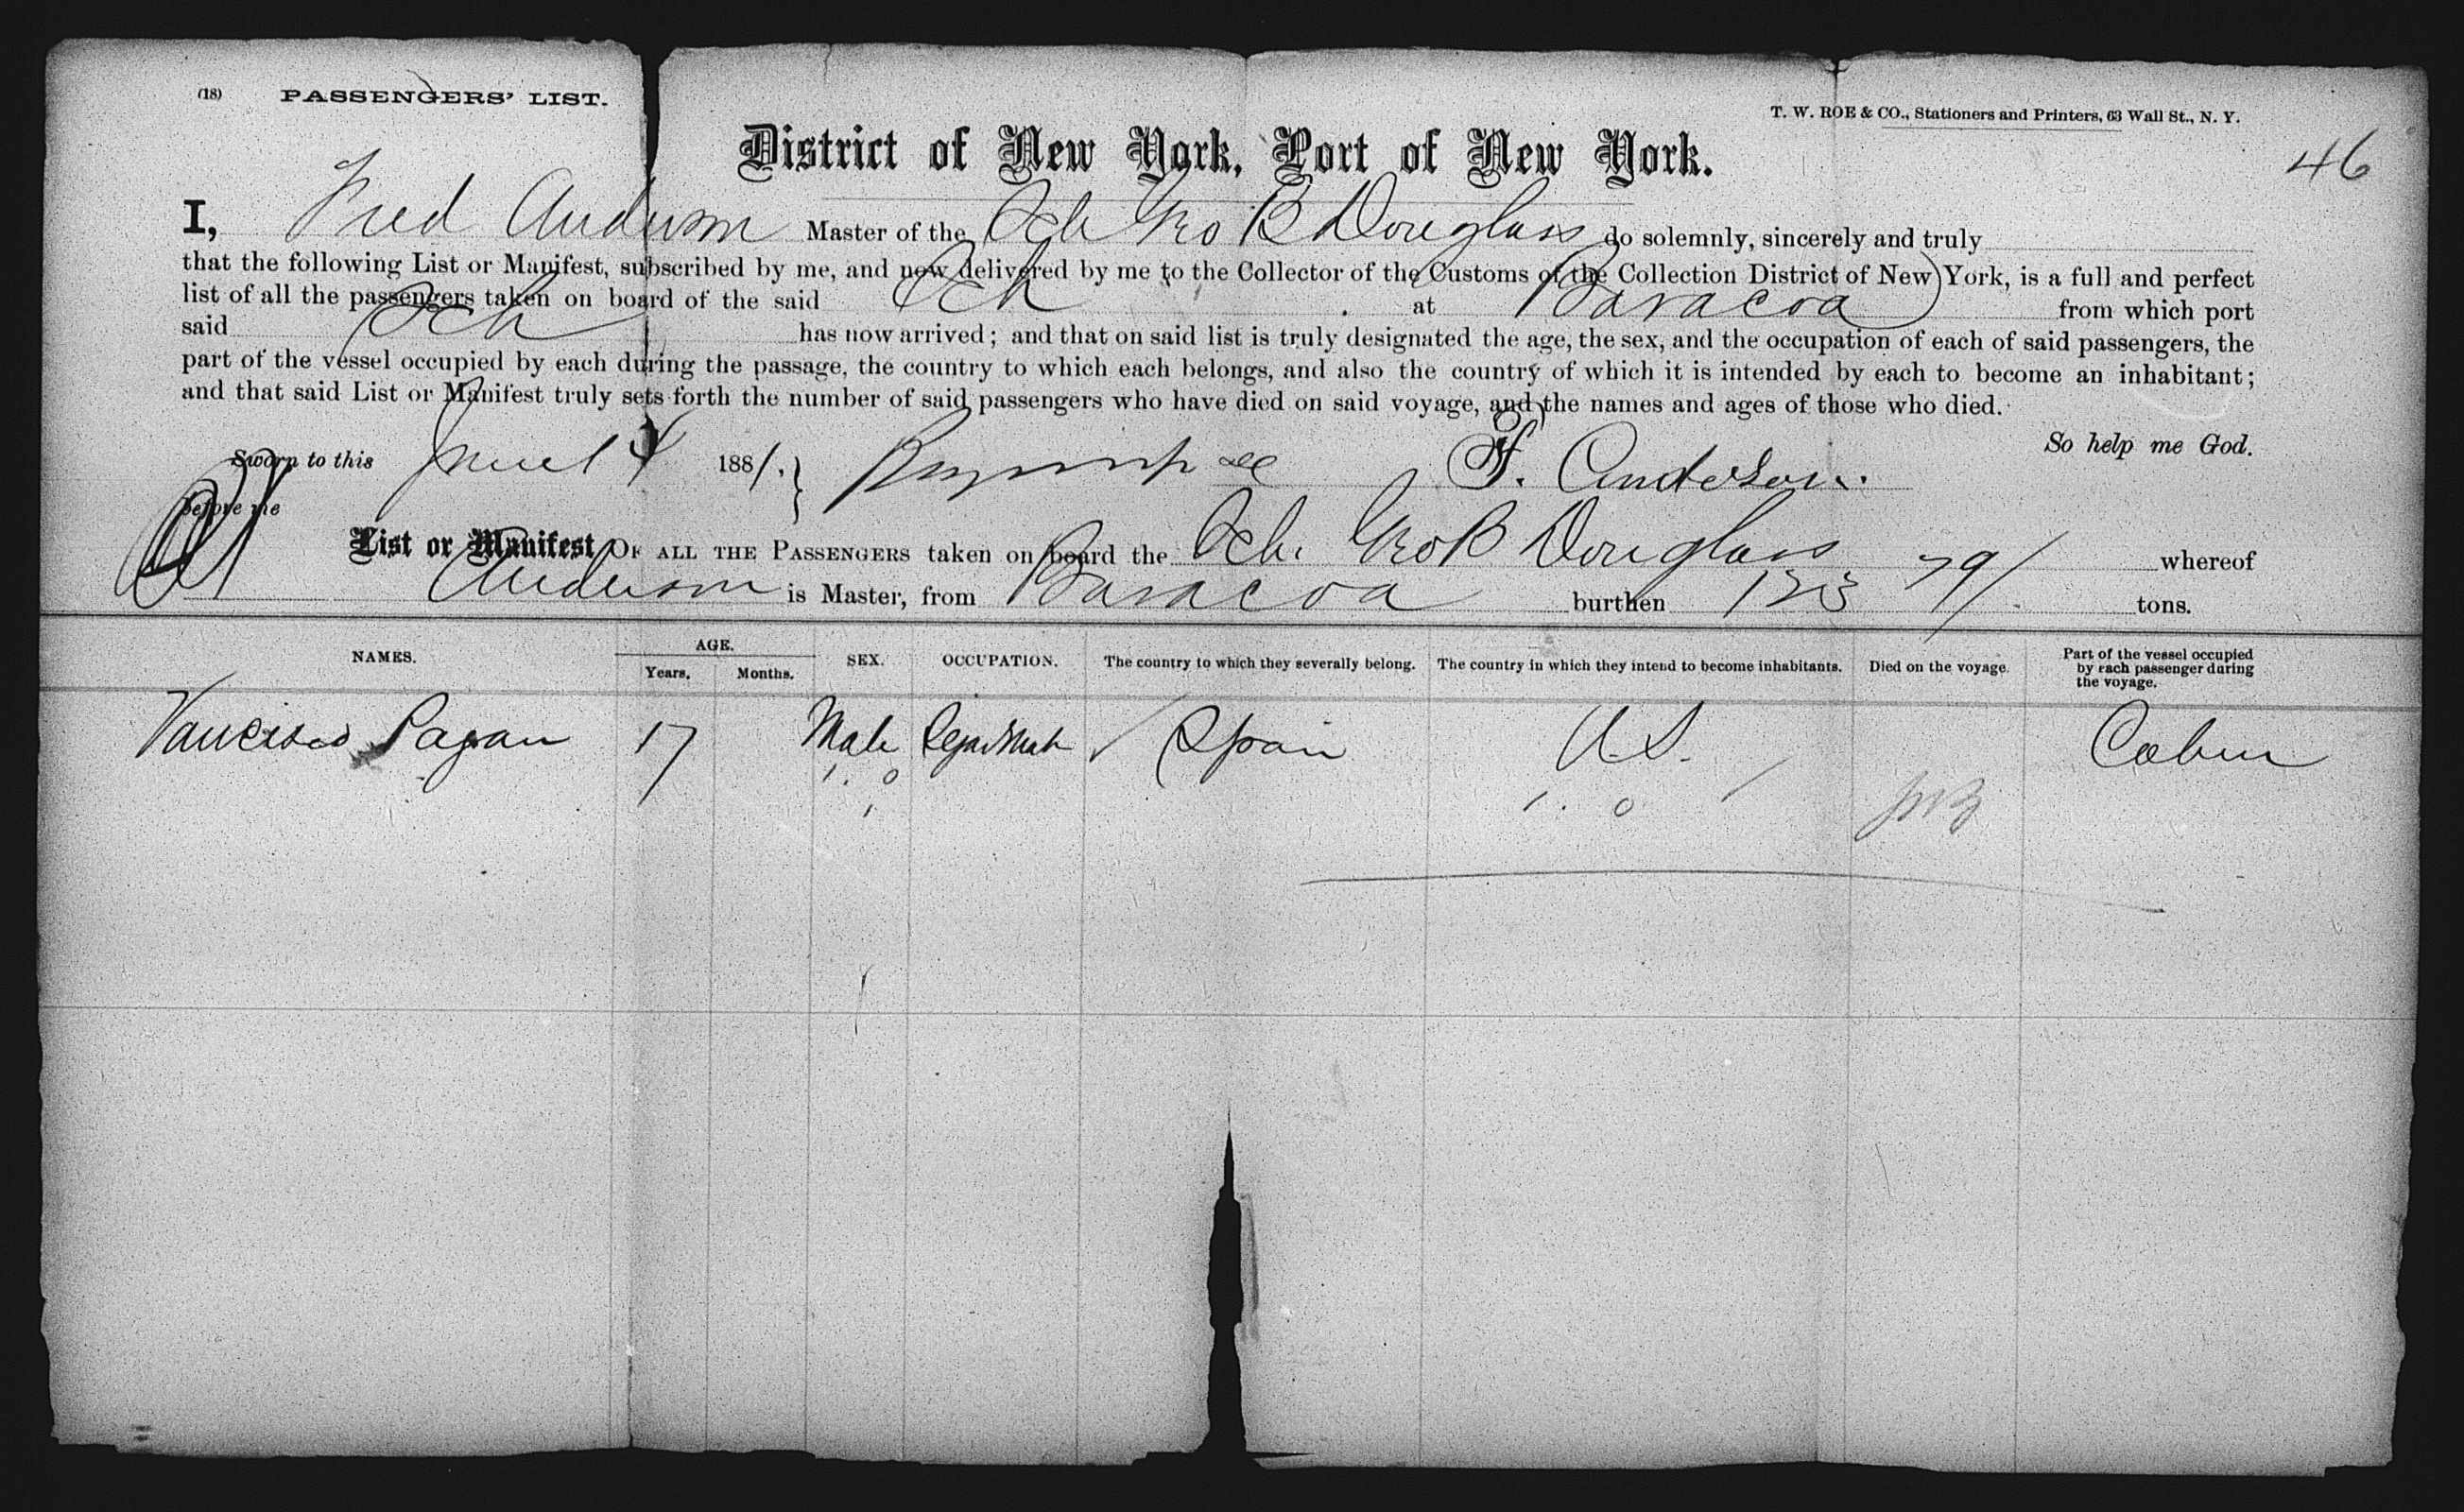 (18) PASSENGERS' LIST.
T. W. ROE & CO., Stationers and Printers, 63 Wall St., N. Y.
46
District of New York, Port of New York.
I, Fred Anderson Master of the Sch Geo B Douglass do solemnly, sincerely and truly
that the following List or Manifest, subscribed by me, and now delivered by me to the Collector of the Customs of the Collection District of New York, is a full and perfect
list of all the passengers taken on board of the said Sch at Baracoa from which port
said Sch has now arrived; and that on said list is truly designated the age, the sex, and the occupation of each of said passengers, the
part of the vessel occupied by each during the passage, the country to which each belongs, and also the country of which it is intended by each to become an inhabitant;
and that said List or Manifest truly sets forth the number of said passengers who have died on said voyage, and the names and ages of those who died.
So help me God.
Sworn to this June 4 1881. F. Anderson.
before me
List or Manifest OF ALL THE PASSENGERS taken on board the Sch. Geo B Douglass whereof
Anderson is Master, from Baracoa burthen 123 79/ tons.
NAMES. AGE. Years. Months. SEX. OCCUPATION. The country to which they severally belong. The country in which they intend to become inhabitants. Died on the voyage. Part of the vessel occupied by each passenger during the voyage.
Pagan 17 Male Spain U.S. Cabin
1. 0
1. 0